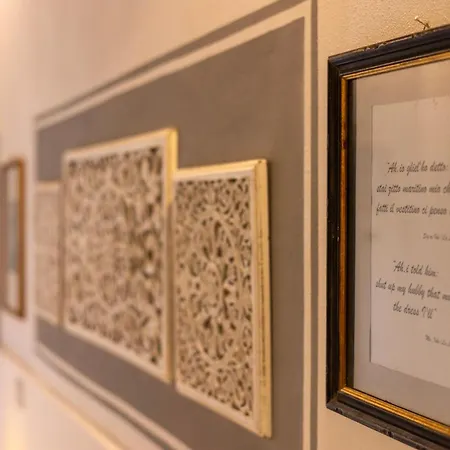 "Ah, io gliel'ho detto:
stai zitto maritino mio ch
fatti il vestitino ci penso
"Ah, i told him:
shut up my hubby that m
the dress I'll"